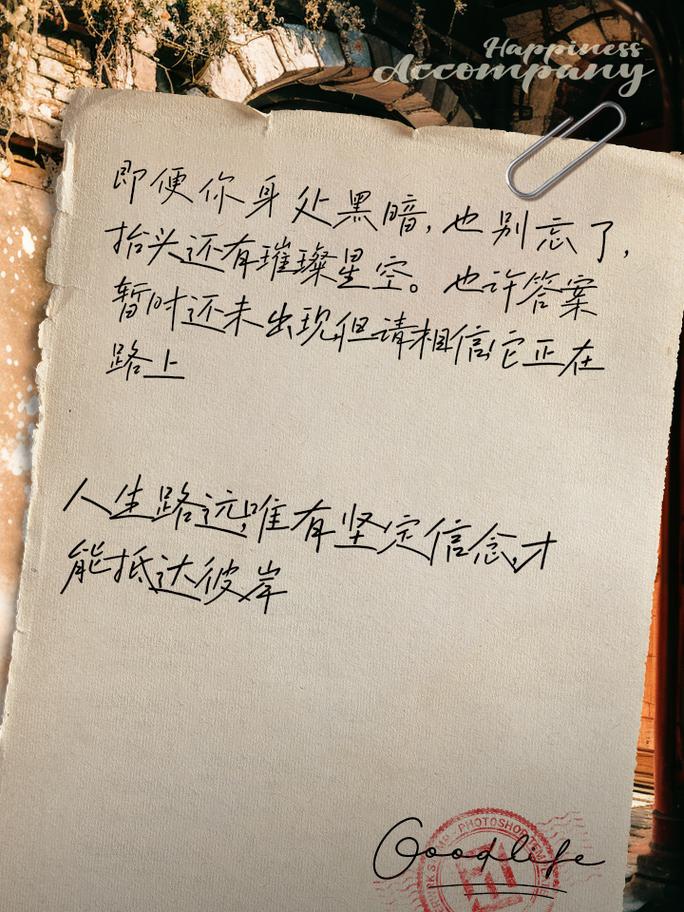 Happiness
Accompany
即便你身处黑暗,也别忘了,
抬头还有璀璨星空。也许答案
暂时还未出现,但请相信它正在
路上
人生路远,唯有坚定信念,才
能抵达彼岸
PHOTOSHOP
Goodlife